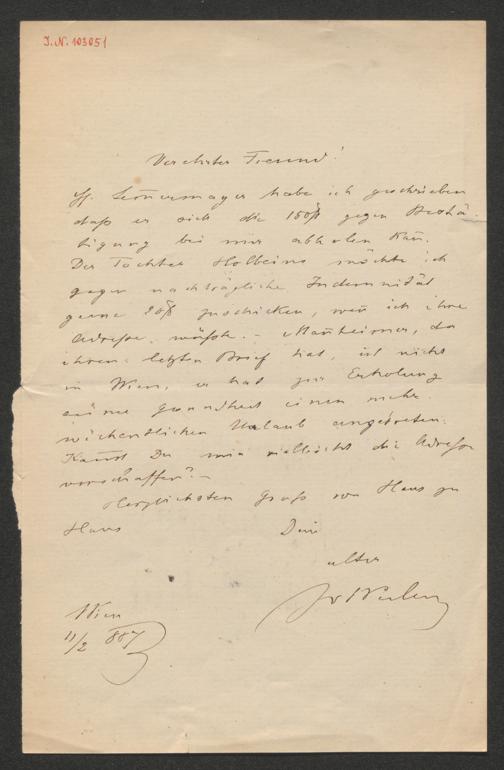 J.N. 103051
Verehrter Freund!
H. Lermermayer habe ich geschrieben
daß er sich die 150 f gegen Bestä-
tigung bei mir abholen kan̄.
Der Tochter Holbeins möchte ich
gegen nachträgliche Indemnität
gerne 20 f zuschicken, wen̄ ich ihre
Adresse wüßte. – Man̄heimer, der
ihren letzten Brief hat, ist nicht
in Wien, er hat zur Erholung
seiner Gesundheit einen mehr-
wöchentlichen Urlaub angetreten.
Kan̄st Du mir vielleicht die Adresse
verschaffen? –
Herzlichsten Gruß von Haus zu
Haus
Dein
alter
Wien
11/2 887